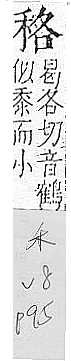 曷各切音鶴
似黍而小
禾
V8
P95